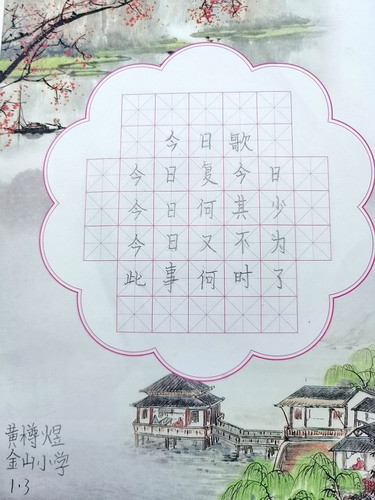 今日歌
今日复今日
今日何其少
今日又不为
此事何时了
黄樽煜
金山小学
1.3